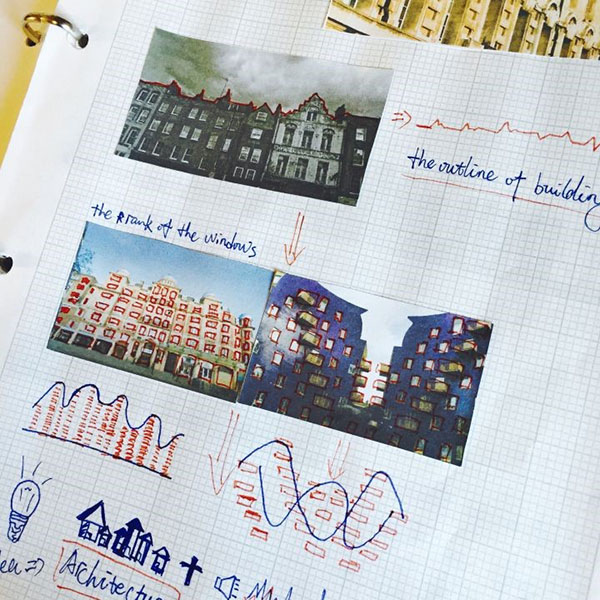 the outline of building
the rank of the windows
Architectu